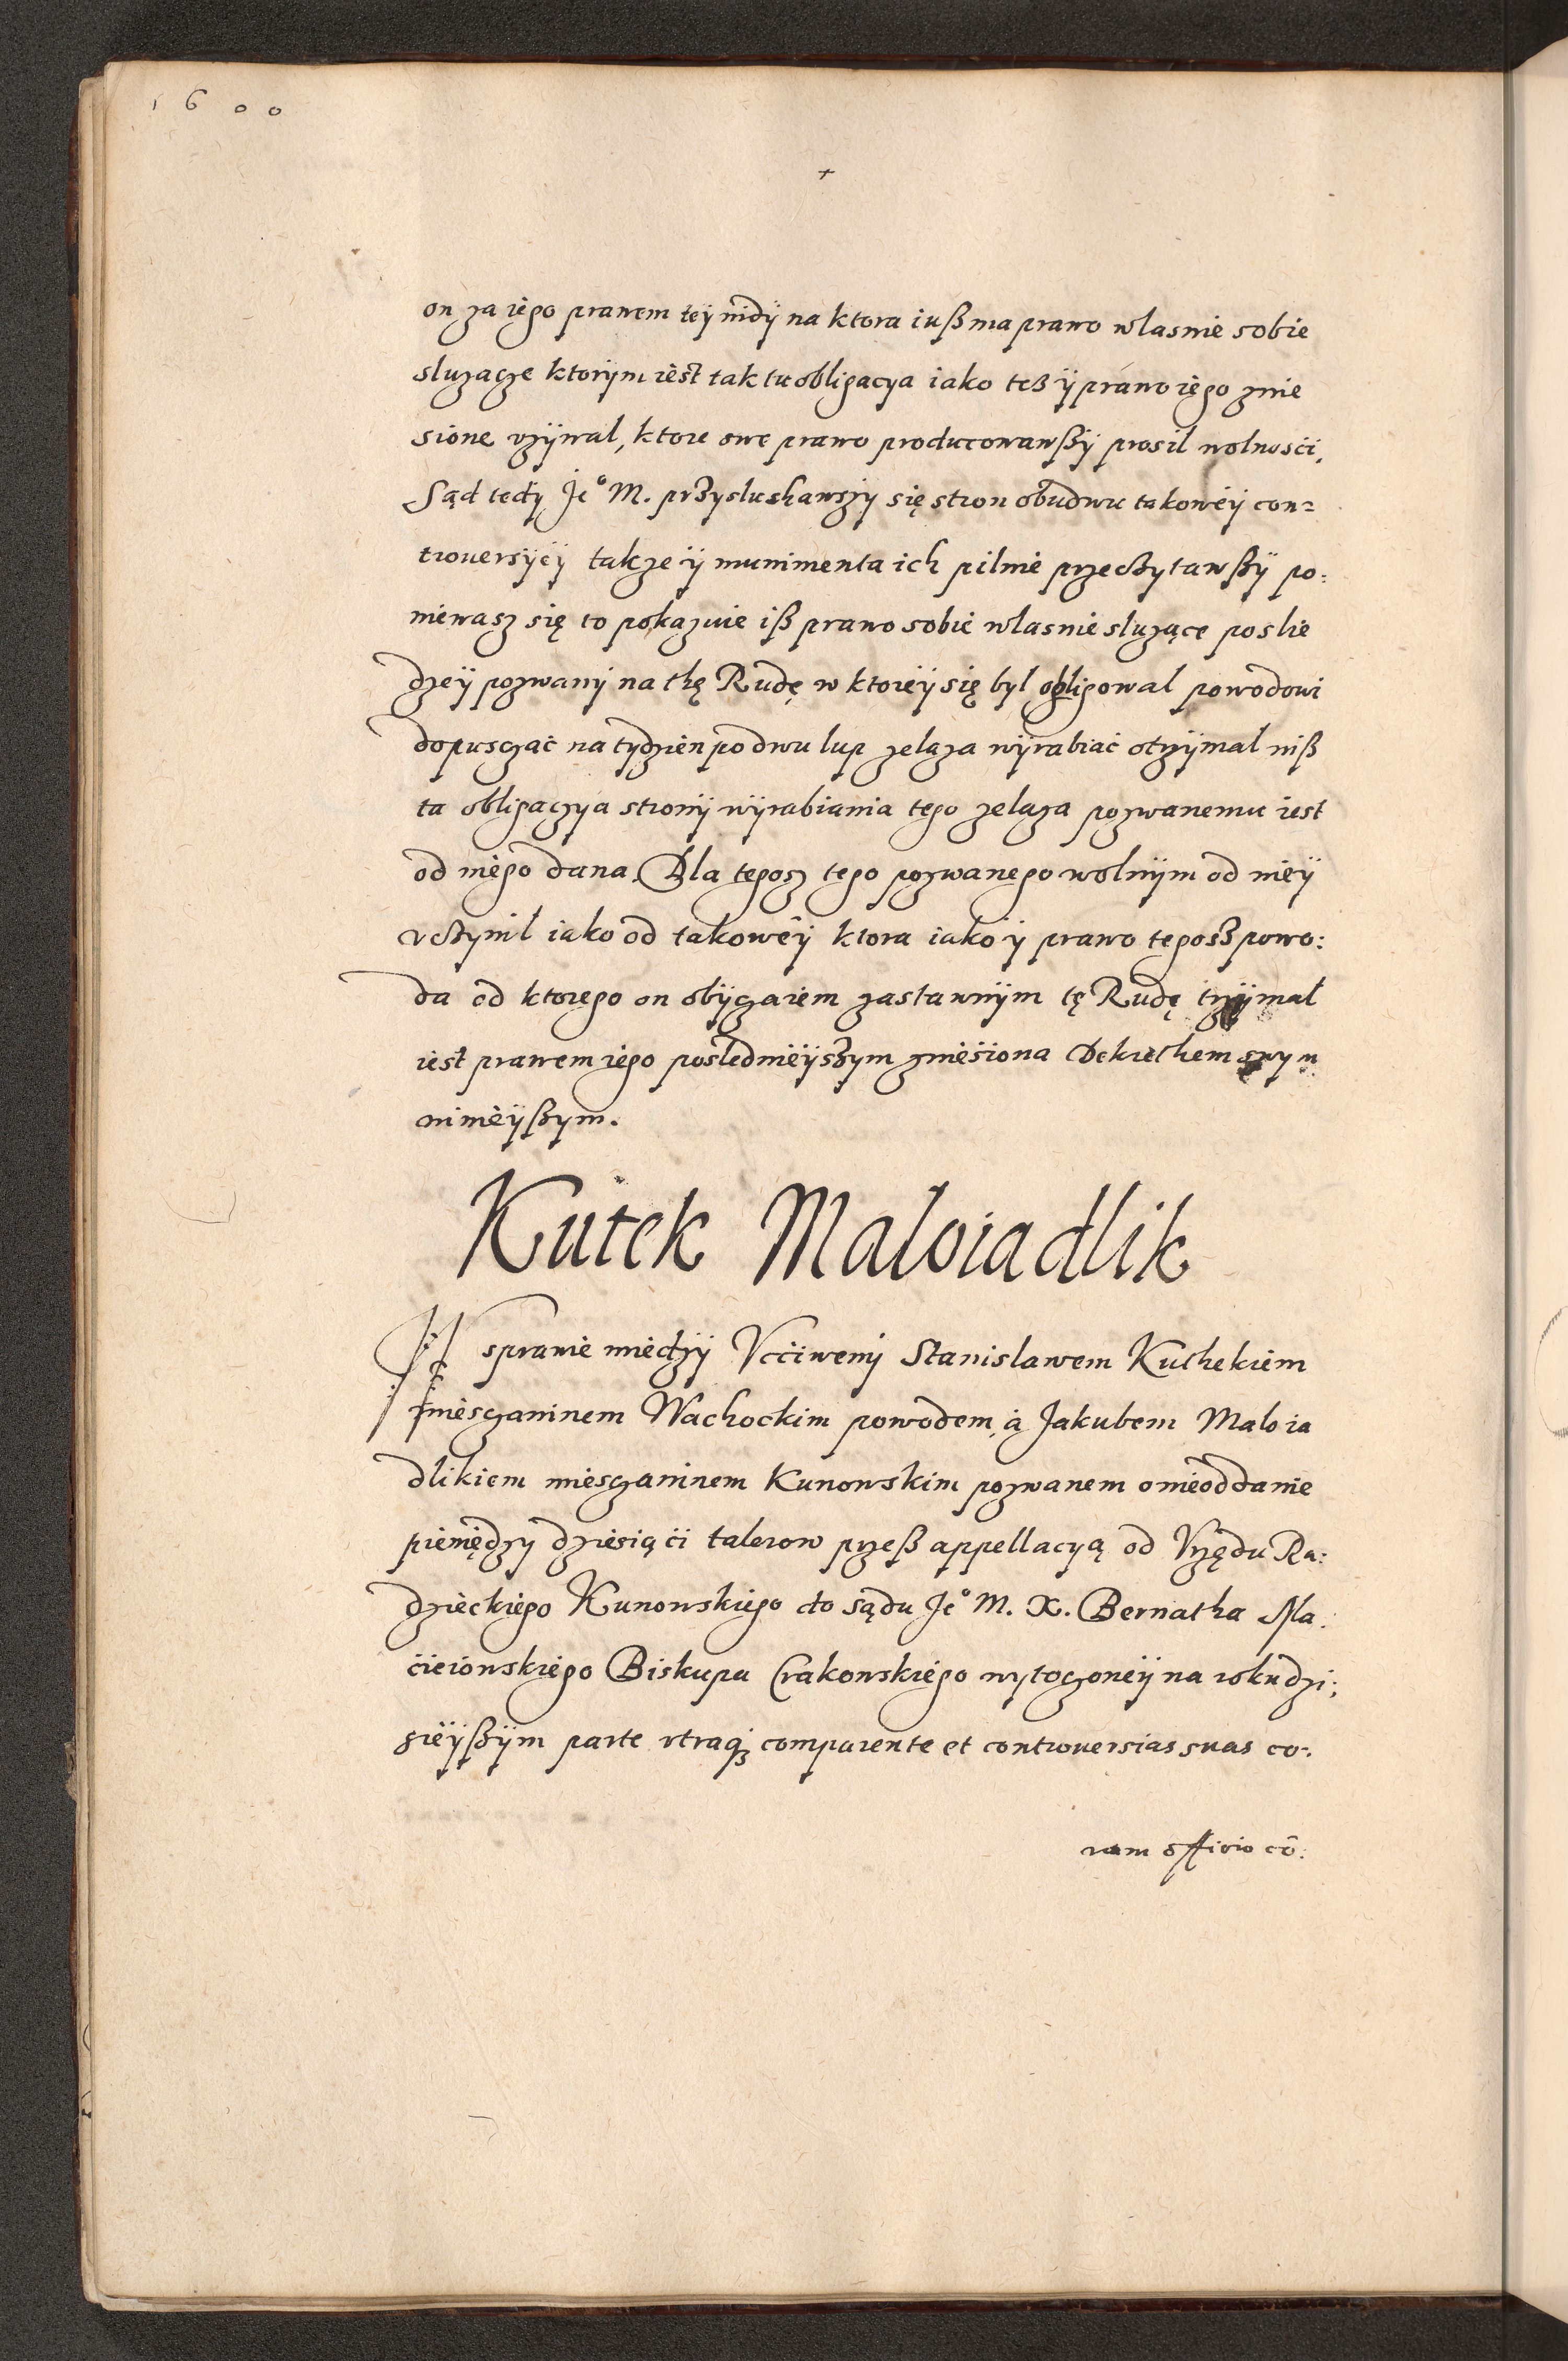 1600
+
on za iego prawem teÿ rudÿ na ktora iuß ma prawo wlasnie sobie
sluzącze ktorÿm iest tak tu obligacya iako teß ÿ prawo iego znie
sione vzÿwal, ktore swe prawo producowawßÿ prosil wolnosći.
Sąd tedÿ Je° M. przyslushawszy się stron obudwu takowéÿ con=
trouersÿéÿ takze ÿ munimenta ich pilnie przeczytawßÿ po:
niewasz się to pokazuie iß prawo sobie wlasnie sluzące poslie
dzeÿ pozwanÿ na thę Rudę w ktoréÿ się byl obligowal powodowi
dopusczać na tydzień po dwu lup zelaza wÿrabiać otrzÿmal niß
ta obligaczya stronÿ wÿrabiania tego zelaza pozwanemu iest
od niego dana. Dla tegosz tego pozwanego wolnÿm od niéÿ
vczynil iako od takowéÿ ktora iako ÿ prawo tegosz powo:
da od ktorego on obÿczaiem zastawnÿm tę Rudę trzÿmal
iest prawem iego posledniéÿszym zniesiona Dekrethem swym
ninieÿßym.
Kutek Maloiadlik
W sprawie miedzÿ Vcćiwemj Stanislawem Kuthekiem
miesczaninem Wachockim powodem, á Jakubem Maloia
dlikiem miesczaninem Kunowskim pozwanem o nieoddanie
pieniędzy dziesiąći talerow przeß appellacyą od Vrzędu Ra:
dzieckiego Kunowskiego do sądu Je° M. X. Bernatha Ma:
ćieiowskiego Biskupa Crakowskiego wytoczoneÿ na roku dzi:
sieÿßÿm parte vtraqȝ comparente et controuersias suas co:
ram officio cō: